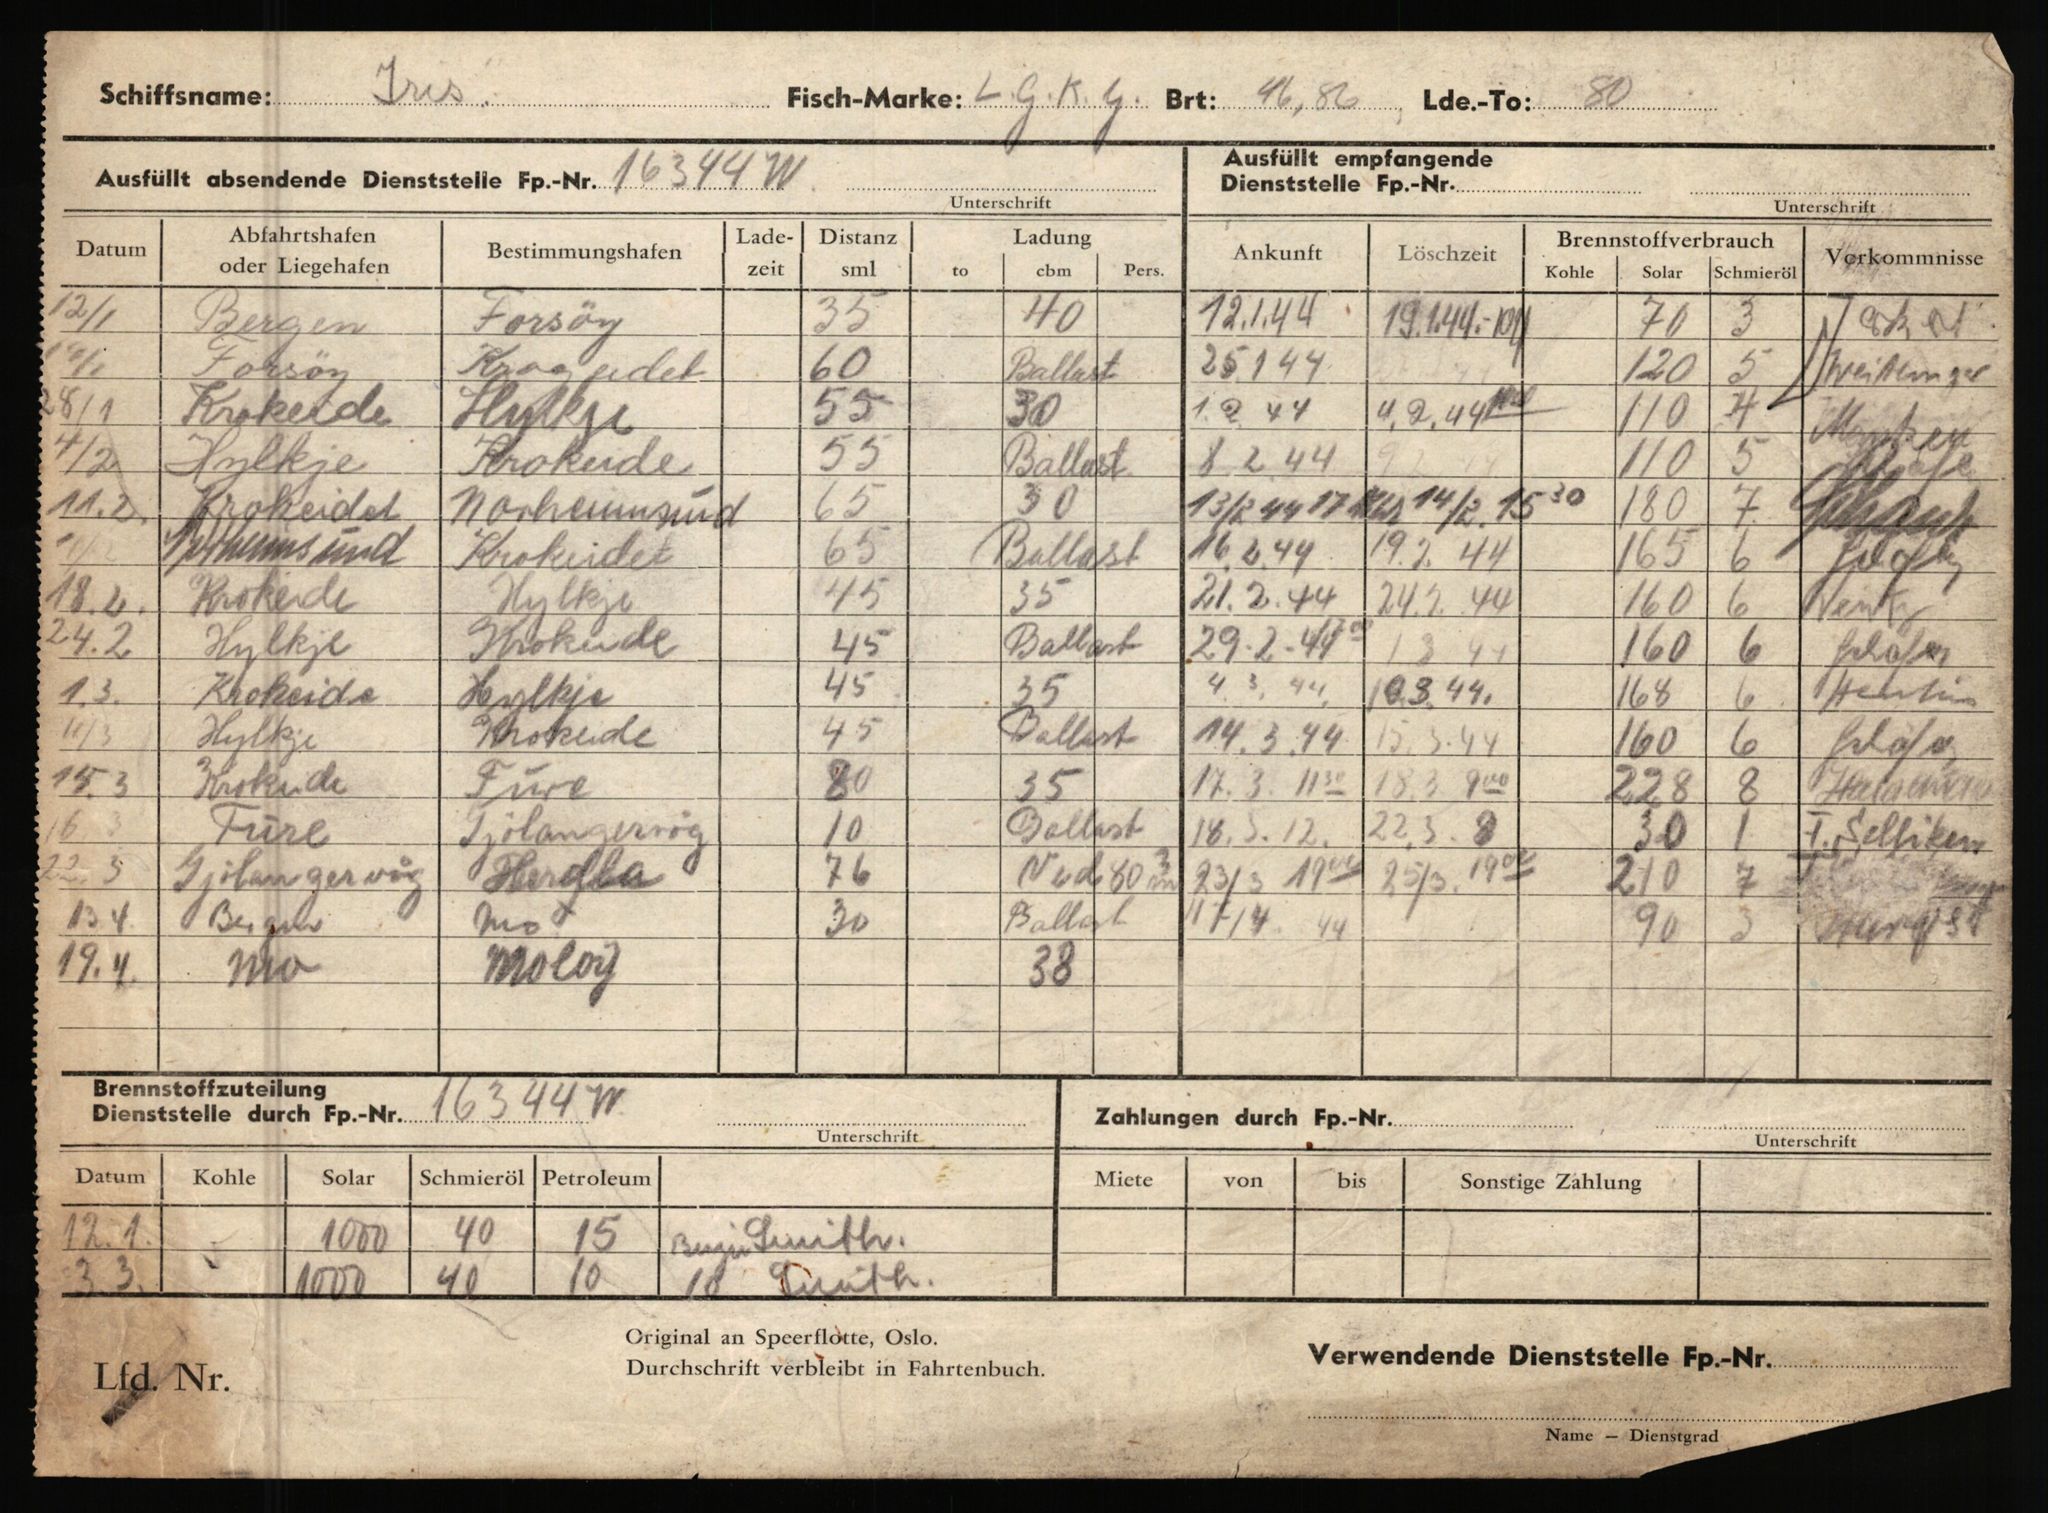 Schiffsname: Iris. Fisch-Marke: L.G.K.G. Brt: 46,86 Lde.-To: 80
Ausfüllt absendende Dienststelle Fp.-Nr. 16344 W
Unterschrift
Ausfüllt empfangende
Dienststelle Fp.-Nr.
Unterschrift
Datum Abfahrtshafen oder Liegehafen Bestimmungshafen Lade-zeit Distanz sml Ladung to cbm Pers. Ankunft Löschzeit Brennstoffverbrauch Kohle Solar Schmieröl Vorkommnisse
12/1 Bergen Forsöy 35 40 12.1.44 19.1.44.- 70 3
Forsöy 60 Ballast 25.1 44 120 5
28/1 Krokeide Hylkje 55 30 1.2.44 4.2.44 110 4
4/2 Hylkje Krokeide 55 Ballast 8.2 44 9 2 44 110 5
11.2. Krokeidet Norheimsund 65 30 13/2 44 14/2. 15 30 180 7.
Norheimsund Krokeidet 65 Ballast 16.2.44 19.2.44 165 6
18.2. Krokeide Hylkje 45 35 21.2.44 24.2.44 160 6
24.2 Hylkje Krokeide 45 Ballast 29.2.44 1 3 44 160 6
1.3. Krokeide Hylkje 45 35 4.3.44. 10.3.44. 168 6
11/3 Hylkje Krokeide 45 Ballast 14.3.44 15.3.44 160 6
15.3 Krokeide Füre 80 35 17.3. 11 30 18.3 9 00 228 8
16 3 Füre Gjölangervåg 10 Ballast 18.3.12. 22.3. 8 30 1 T. Sellikens
22.3 Gjölangervåg Herdla 76 80 m3 23/3 19 00 25/3. 19 00 210 7
13.4. Bergen Mo 30 Ballast 17/4 44 90 3
19.4. Mo Moloy 38
Brennstoffzuteilung
Dienststelle durch Fp.-Nr. 16344 W.
Unterschrift
Zahlungen durch Fp.-Nr.
Unterschrift
Datum Kohle Solar Schmieröl Petroleum Miete von bis Sonstige Zahlung
12.1. - 1000 40 15 Bergen Smith.
3.3. - 1000 40 10 10 Smith.
Original an Speerflotte, Oslo.
Durchschrift verbleibt in Fahrtenbuch.
Lfd. Nr.
Verwendende Dienststelle Fp.-Nr.
Name – Dienstgrad